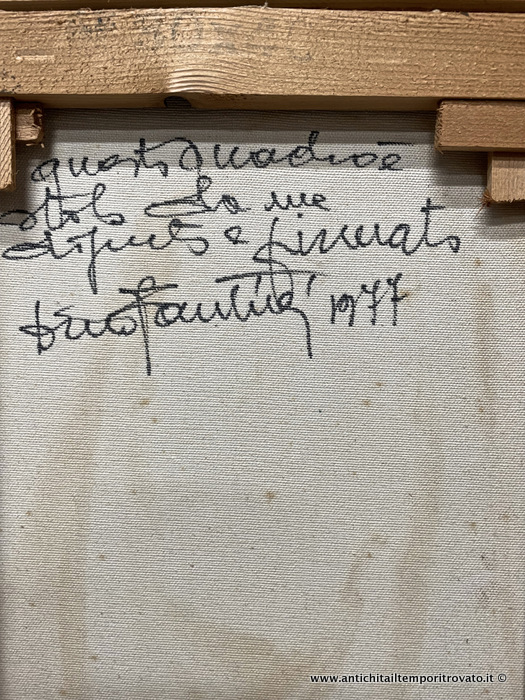 questo quadro è
stato da me
dipinto e firmato
Dino Fantini 1977
www.antichitailtempoритrovato.it ©